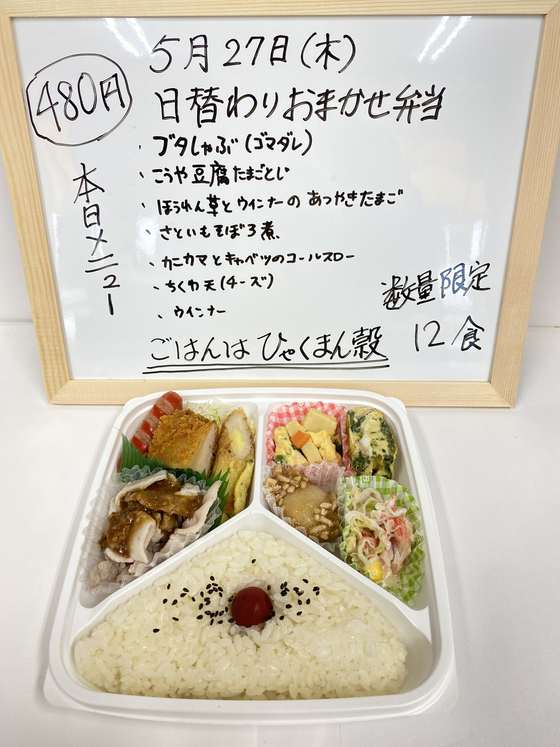 5月27日(木)
480円
日替わりおまかせ弁当
本日メニュー
・ブタしゃぶ(ゴマダレ)
・こうや豆腐たまごとじ
・ほうれん草とウインナーのあつやきたまご
・さといもそぼろ煮
・カニカマとキャベツのコールスロー
・ちくわ天(チーズ)
・ウインナー
数量限定
12食
ごはんはひゃくまん穀